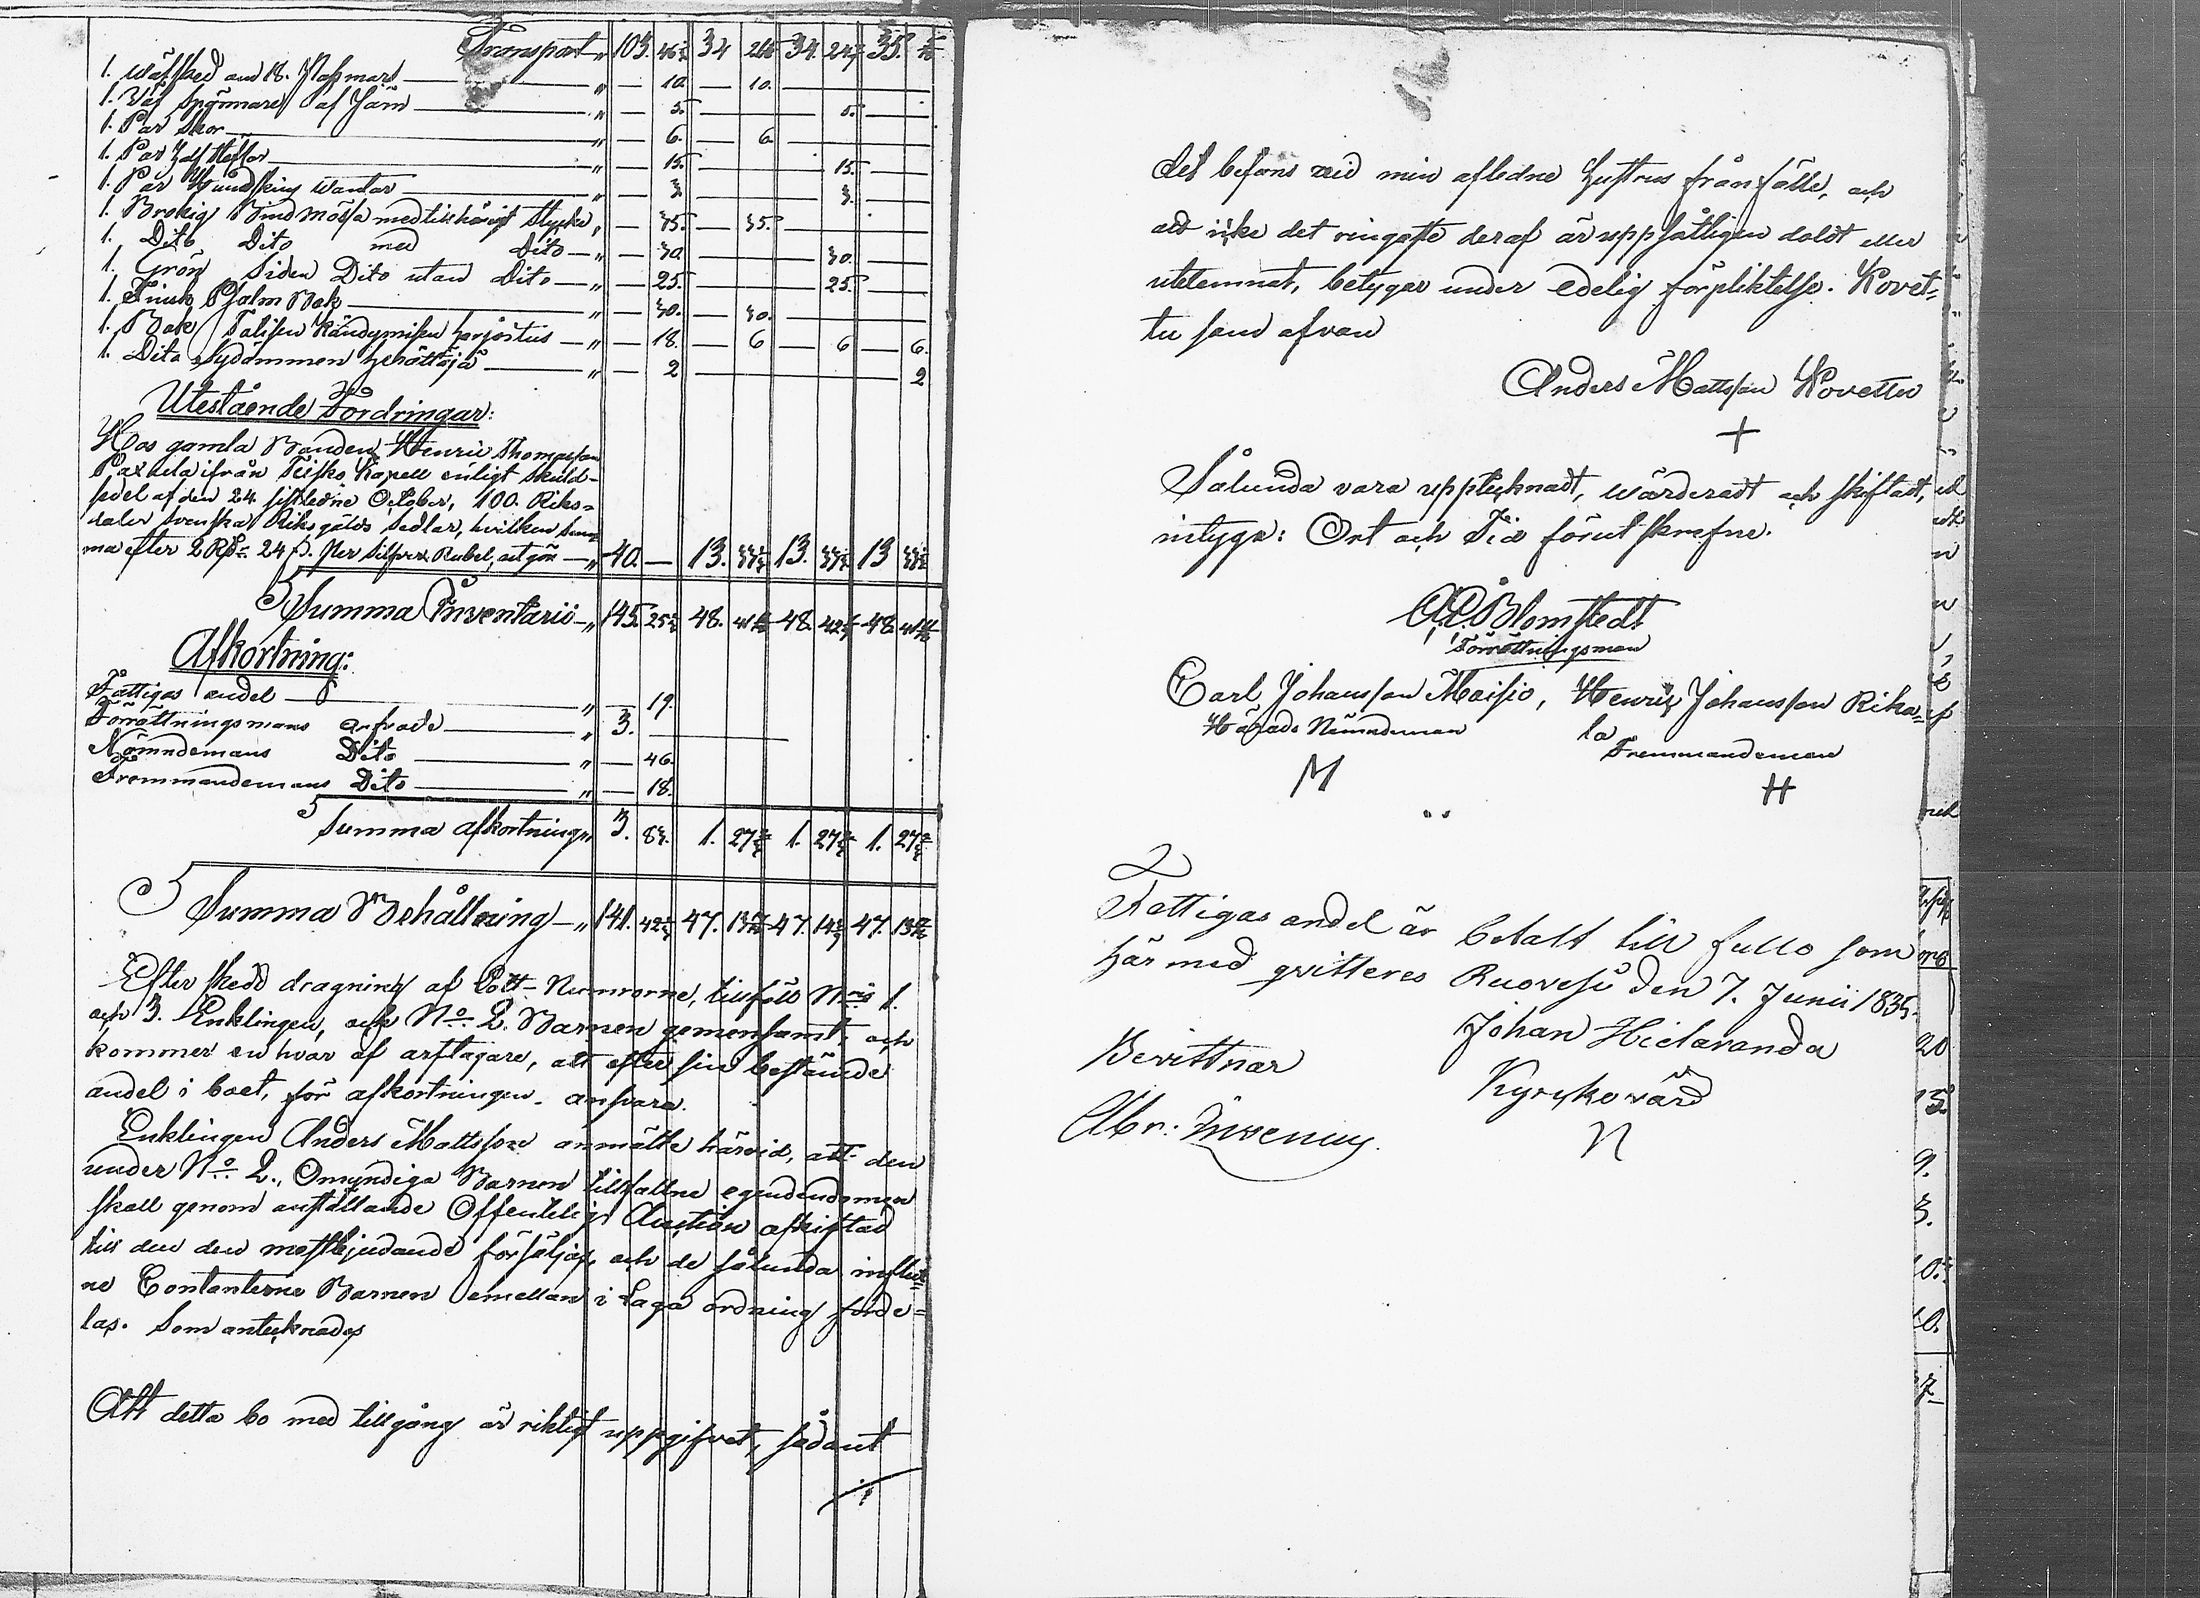 Transport „ 103. 46 34 34. 24 35.
1. Wäfsked „ — 10. — 10.
1. Wäf spännare af Järn „ — 5. 5.
1. Par Skor „ — 6. — 6
1. Par Half Stöflor „ — 15. 15.
1. Par Hundskins Wantar „ — 3. 3.
1. Brokig Bindmössa med tillhörigt Stycke „ — 35. — 35.
1. Dito Dito med Dito „ — 30. 30.
1. Grön Siden Dito utan Dito „ — 25. 25.
1. Finsk Psalm Bok „ — 30. — 30.
1. Bok „ — 18. — 6 — 6 — 6.
1. Dito Sydämmen „ — 2 2
Utestående Fordringar:
Hos gamla Bonden Henric Thomasson
ifrån Teisko Kapell enligt skuld-
sedel af den 24. sistledne October, 100. Riks-
daler Svenska Riksgälds Sedlar, hvilken Sum-
ma efter 2 Rd. 24 s. per Silfver Rubel, utgör „ 40. — 13. 33 13. 33 13 33
Summa Inventarii „ 145. 25 48. 41 48. 42 48. 41
Afkortning:
Fattigas andel „ — 19.
Förrättningsmans arfvode „ 3. —
Nämndemans Dito „ — 46.
Fremmandemans Dito „ — 18.
Summa afkortning „ 3. 83. 1. 27 1. 27 1. 27
Summa Behållning „ 141. 42 47. 13 47. 14 47. 13
Efter skedd dragning af Lott-Numrorne, tillföll N:ris 1.
och 3. Enklingen, och N:o 2. Barnen gemensamt, och
kommer en hvar af arftagare, att efter sin bestånde
andel i boet, för afkortningen ansvara.
Enklingen Anders Mattsson anmälte härvid, att den
under N:o 2., Omyndiga Barnen tillfallne egendomen
skall genom anställande Offentelig Auction afskiftad
till den den mestbjudande försäljas, och de sålunda influt-
ne Contanterne Barnen emellan i Laga ordning förde-
las. Som antecknades
Att detta bo med tillgång är riktigt uppgifvet, sådant
det befans vid min afledne Hustrus frånfälle, och
att icke det ringaste deraf är uppsåtligen doldt eller
utelemnat, betygar under edelig förpliktelse. Kovet-
tu som ofvan
Anders Mattsson Kovettu
+
Sålunda vara upptecknadt, wärderadt och skiftadt,
intyga: Ort och Tid förut skrefne.
Blomstedt
Förrättningsman
Carl Johansson Maisio, Henric Johansson Rika-
Härads Nämndeman la
Fremmandeman
M H
Fattigas andel är betalt till fullo som
här med qvitteres Ruovesi den 7. Junii 1835.
Johan Hielavanda
Bevittnar
Kyrckovärd
Abr:
N